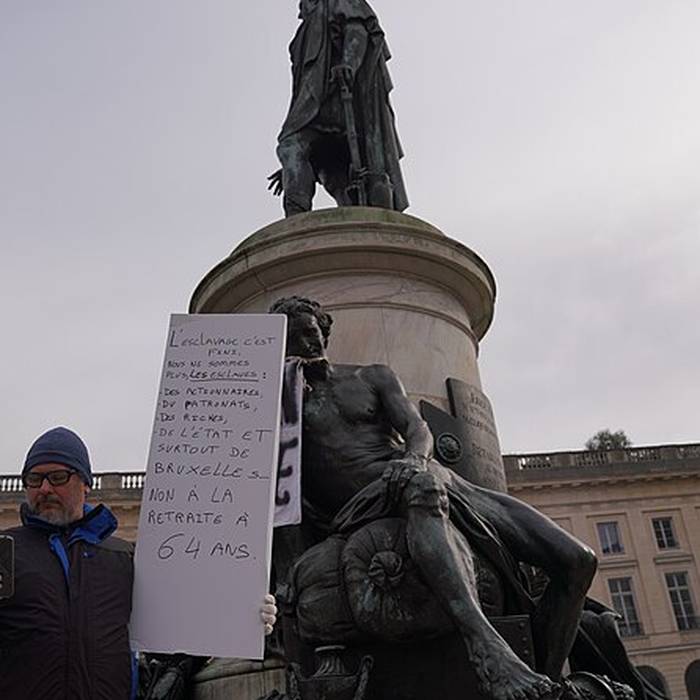 L'ESCLAVAGE C'EST
FINI,
NOUS NE SOMMES
PLUS LES ESCLAVES :
- DES ACTIONNAIRES,
- DU PATRONATS,
- DES RICHES,
- DE L'ÉTAT ET
SURTOUT DE
BRUXELLES_
NON À LA
RETRAITE À
64 ANS.